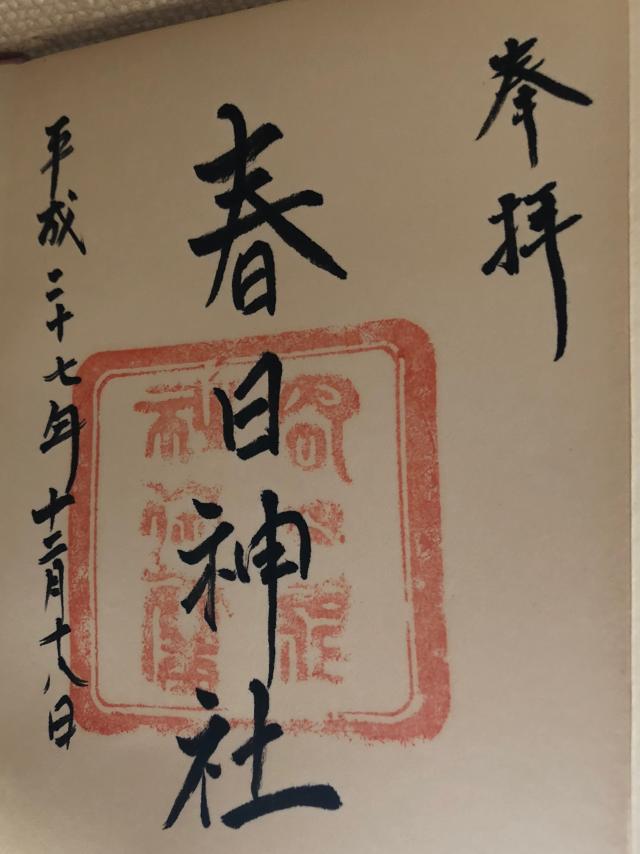 奉拝
春日神社
平成二十七年十二月十八日